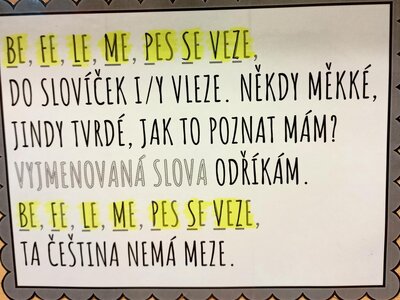 BE, FE, LE, ME, PES SE VEZE,
DO SLOVÍČEK I/Y VLEZE. NĚKDY MĚKKÉ,
JINDY TVRDÉ, JAK TO POZNAT MÁM?
VYJMENOVANÁ SLOVA ODŘÍKÁM.
BE, FE, LE, ME, PES SE VEZE,
TA ČEŠTINA NEMÁ MEZE.